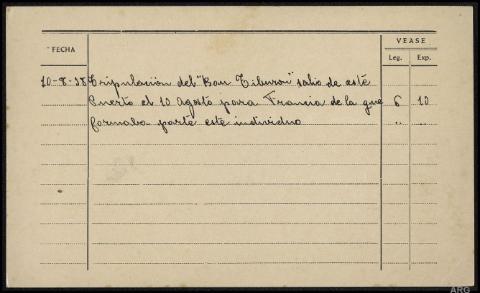 VEASE
FECHA
Leg. Exp.
10-8-38 Tripulación del "Bou Tiburon" salio de esté
Puerto el 10 Agosto para Francia de la que 6 10
formaba parte este individuo " "
ARG